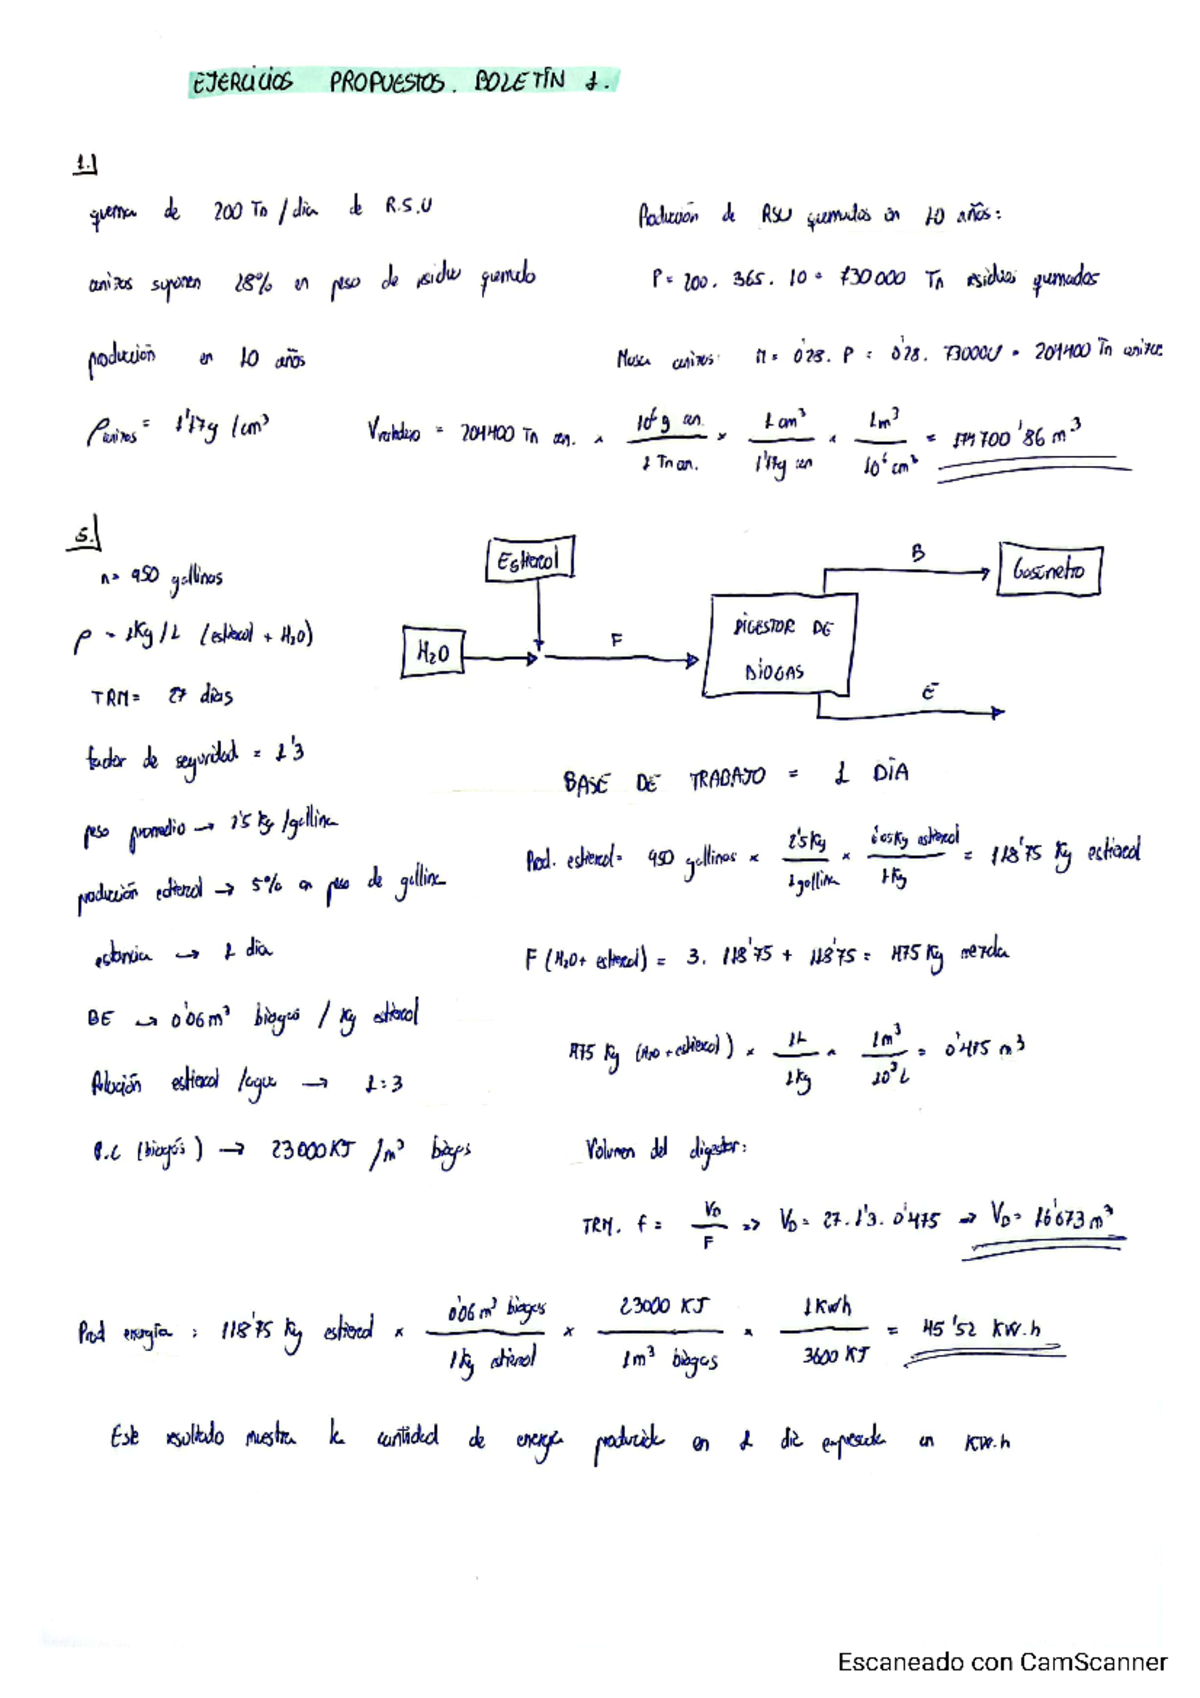 EJERCICIOS PROPUESTOS. BOLETÍN 1.
1.)
quema de 200 Tn / dia de R.S.U
cenizas suponen 28% en peso de residuo quemado
producción en 10 años
ρcenizas = 1'17g / cm³
Producción de RSU quemados en 10 años:
P = 200 . 365 . 10 = 730000 Tn residuos quemados
Masa cenizas: M = 0'28 . P = 0'28 . 730000 = 204400 Tn cenizas
Vvertedero = 204400 Tn cen. x 10⁶ g cen. / 1 Tn cen. x 1 cm³ / 1'17g cen x 1m³ / 10⁶ cm³ = 174700'86 m³
5.)
n = 950 gallinas
ρ = 1Kg / L (estiercol + H₂O)
TRM = 27 dias
factor de seguridad = 1'3
peso promedio → 2'5 Kg /gallina
producción estiercol → 5% en peso de gallina
estancia → 1 dia
BE → 0'06 m³ biogas / Kg estiercol
Dilución estiercol /agua → 1:3
P.C (biogás) → 23000KJ /m³ biogas
Estiercol
H₂O
F
DIGESTOR DE BIOGAS
B
Gasómetro
E
BASE DE TRABAJO = 1 DÍA
Prod. estiercol = 950 gallinas x 2'5Kg / 1 gallina x 0'05Kg estiercol / 1Kg = 118'75 Kg estiercol
F (H₂O + estiercol) = 3 . 118'75 + 118'75 = 475 Kg mezcla
475 Kg (H₂O + estiercol) x 1L / 1Kg x 1m³ / 10³ L = 0'475 m³
Volumen del digestor:
TRM . f = VD / F => VD = 27 . 1'3 . 0'475 → VD = 16'673 m³
Prod energía : 118'75 Kg estiercol x 0'06 m³ biogas / 1Kg estiercol x 23000 KJ / 1m³ biogas x 1Kwh / 3600 KJ = 45'52 KW.h
Este resultado muestra la cantidad de energía producida en 1 dia expresada en KW.h
Escaneado con CamScanner